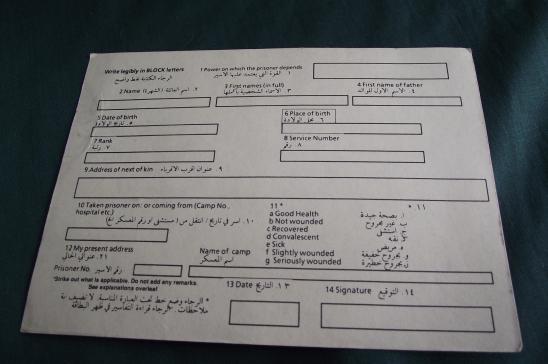 Write legibly in BLOCK letters
الرجاء الكتابة بخط واضح
1 Power on which the prisoner depends
١. القوة التي يعتمد عليها الأسير
2 Name
٢. اسم العائلة (الشهرة)
3 First names (in full)
٣. الأسماء الشخصية بأكملها
4 First name of father
٤. الاسم الأول للوالد
5 Date of birth
٥. تاريخ الولادة
6 Place of birth
٦. محل الولادة
7 Rank
٧. رتبة
8 Service Number
٨. رقم
9 Address of next of kin
٩. عنوان اقرب الاقرباء
10 Taken prisoner on: or coming from (Camp No., hospital etc.)
١٠. اسر في تاريخ / انتقل من (مستشفى او رقم المعسكر الخ)
11 *
* ١١
a Good Health
b Not wounded
c Recovered
d Convalescent
e Sick
f Slightly wounded
g Seriously wounded
ا. بصحة جيدة
ب. غير مجروح
نقه
مريض
مجروح خفيفة
مجروح خطيرة
12 My present address
عنواني الحالي
Prisoner No
رقم الاسير
Name of camp
اسم المعسكر
*Strike out what is applicable. Do not add any remarks.
See explanations overleaf
* الرجاء وضع خط تحت العبارة المناسبة. لا تضيف
ملاحظات. الرجاء قراءة التفاسير في ظهر البطاقة
13 Date
التاريخ ١٣
14 Signature
١٤. التوقيع